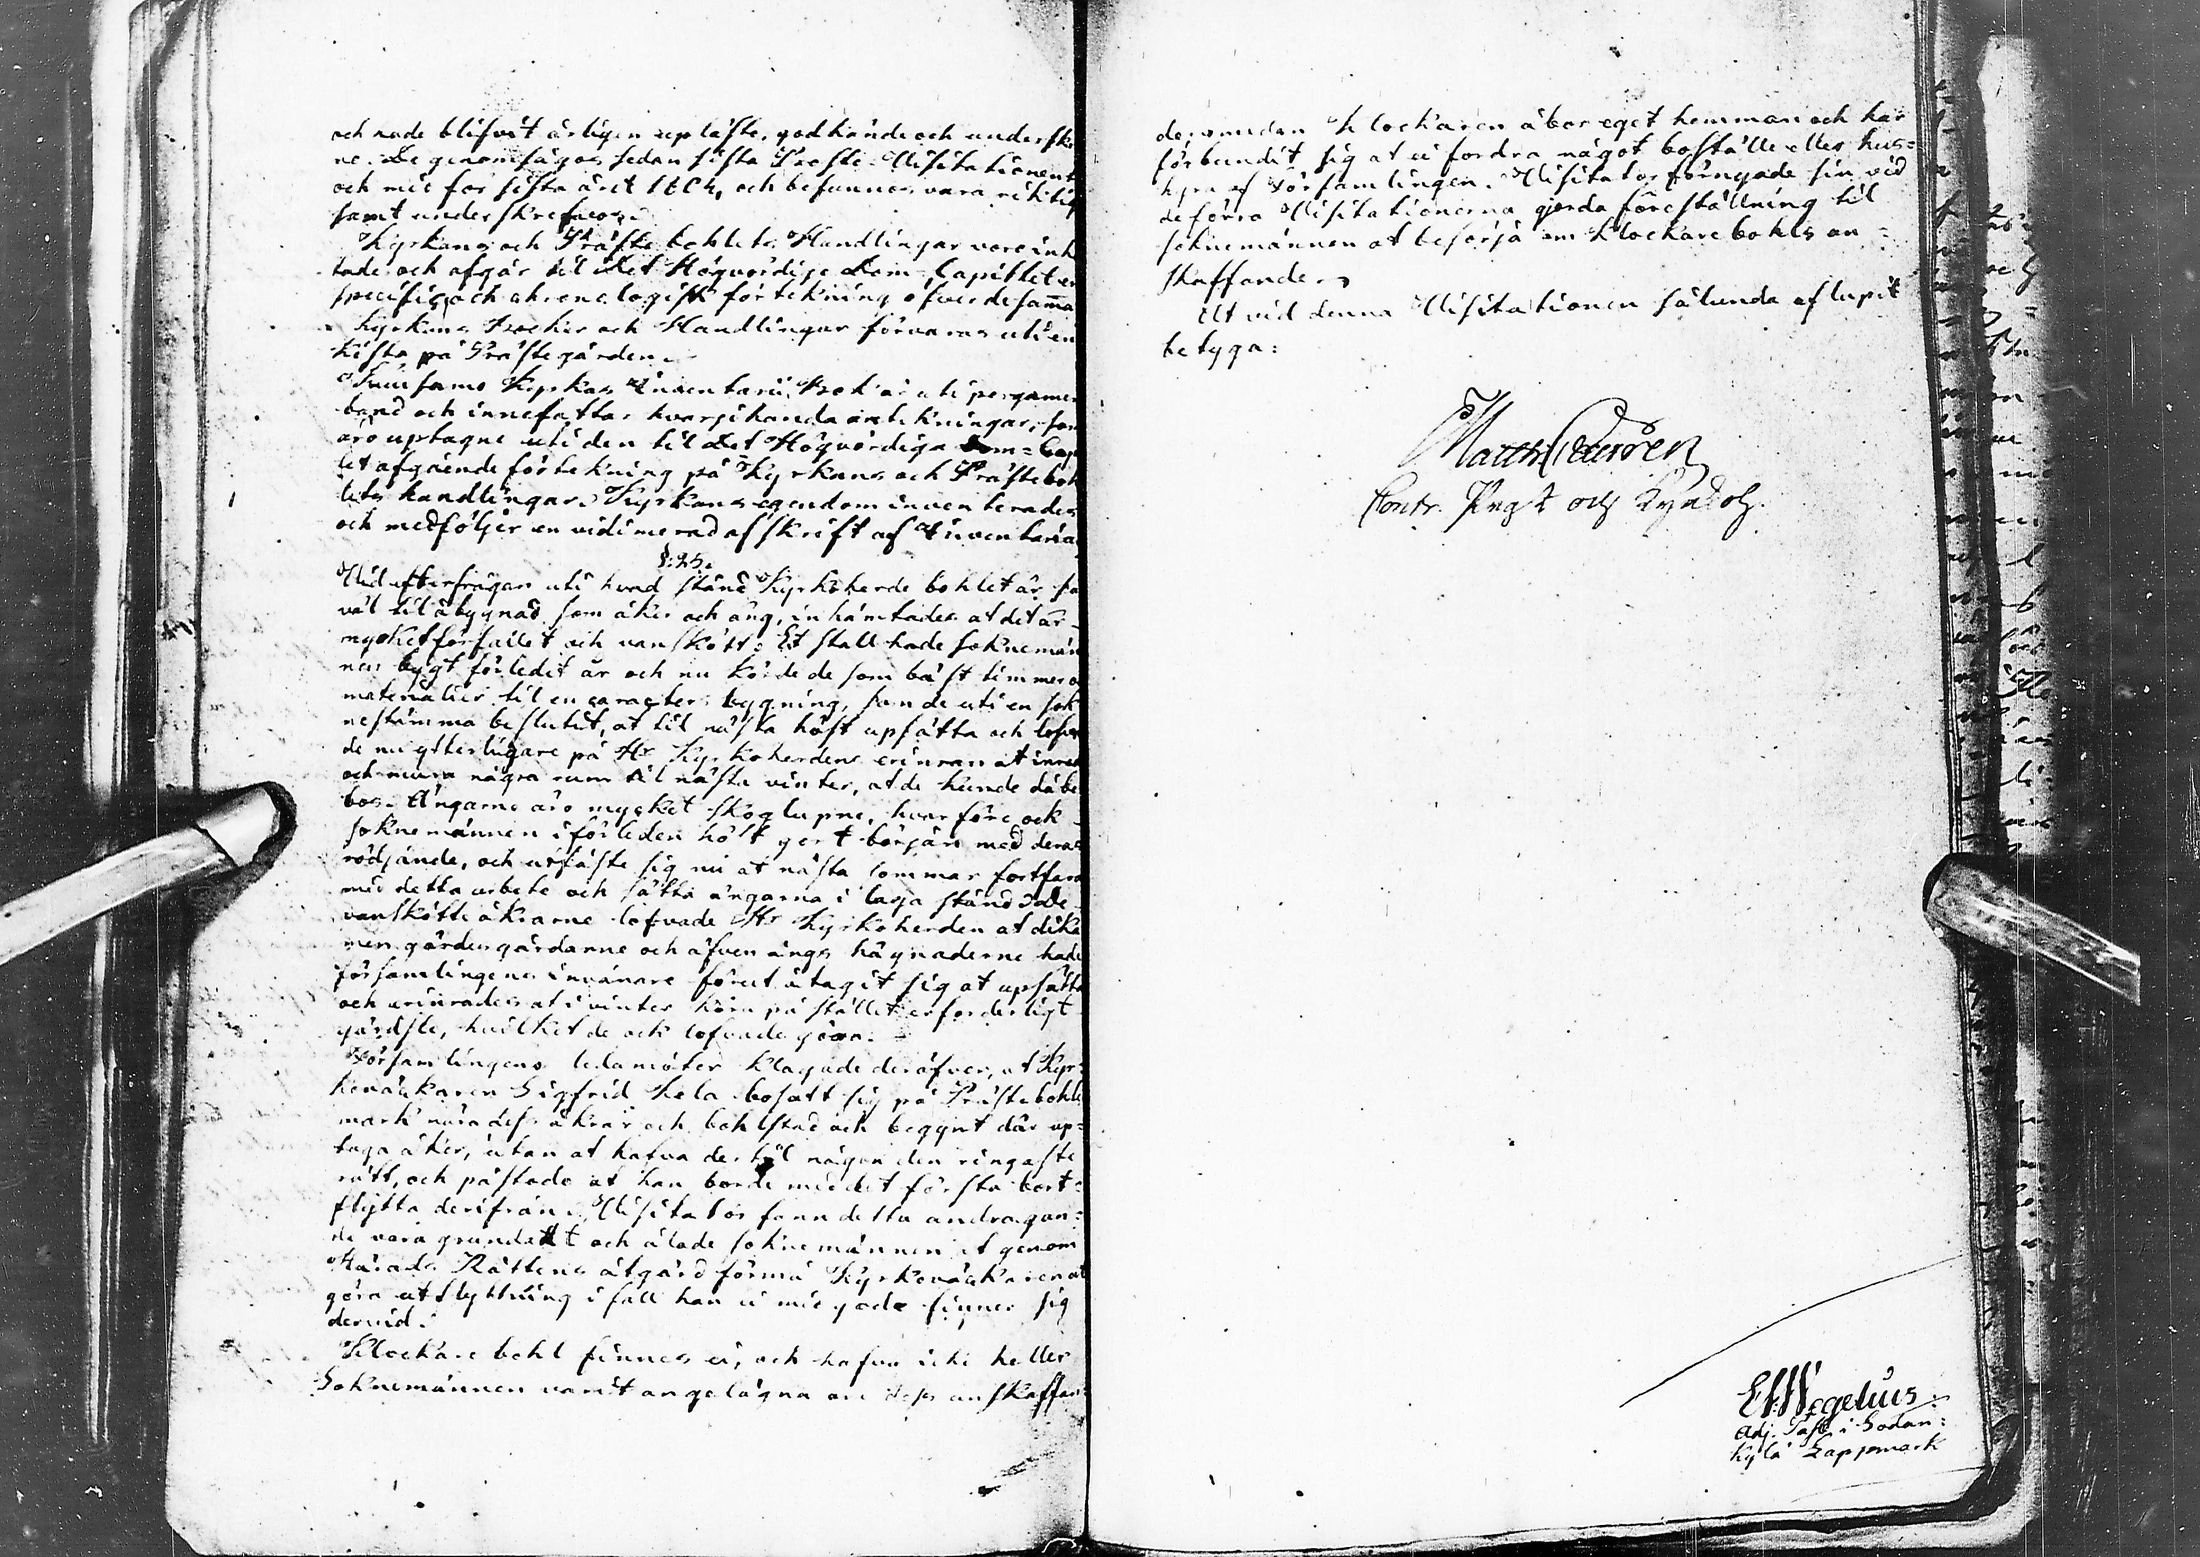 och hade blifvit årligen upläste, godkände och underskr
ne. De genomsågos sedan sista Proste-Visitationen
och med för sista året 1804, och befunnos vara riktig
samt underskrefvos.
Kyrkans och Prästebohlets Handlingar voro inh
tade och afgår til Det Högvördige Dom-Capitlet en
specifique och chronologisk förtekning öfver desamma
Kyrkans Böcker och Handlingar förvaras uti en
Kista på Prästegården.
Kyrkas Inventarii Bok är uti pergamen
band och innefattar hvarjehanda antekningar, som
äro uptagne uti den til Det Högvördiga Dom-Cap
let afgående förtekning på Kyrkans och Prästeboh
lets handlingar. Kyrkans egendom inventerades
och medföljer en vidimerad afskrift af Inventaria
§. 25.
Vid efterfrågan uti hvad stånd Kyrkoherde bohlet är så
väl til åbyggnad som åker och äng, inhämtades at det är
mycket förfallet och vanskött: Et stall hade soknemän
nen bygt förledit år och nu körde de som bäst timmer o
materialier til en caracters bygning, som de uti en sok
nestämma beslutit, at til nästa höst upsätta och lofva
de nu ytterligare på Hr Kyrkoherdens erinran at inred
och mura några rum til nästa vinter, at de kunde då be
bos. Ängarne äro mycket skoglupne, hvarföre ock
soknemännen i förleden höst gort början med deras
rödjande, och utfäste sig nu at nästa sommar fortfara
med detta arbete och sätta ängarna i laga stånd. De
vanskötte åkrarne lofvade Hr Kyrkoherden at dika
men gärdesgårdarne och äfven ängs hägnaderne hade
församlingens invånare förut åtagit sig at upsätta
och erinrades at i vinter köra på stället erforderligt
gärdsle, hvilket de ock lofvade göra.
Församlingens ledamöter klagade deröfver, at Kyr-
koväktaren Sigfrid Kela bosatt sig på Prästebohls
mark nära dess åkrar och bohlstad och begynt där up-
taga åker, utan at hafva der til någon den ringaste
rätt, och påstodo at han borde med det första bort-
flytta derifrån. Visitator fann detta andragan-
de vara grundadt och ålade soknemännen at genom
Härads Rättens åtgärd förmå Kyrkoväktaren at
göra utflyttning i fall han ei med godo finner sig
dervid.
Klockare bohl finnes ei, och hafva icke heller
Soknemännen varit angelägna om dess anskaffan-
de, emedan Klockaren åbor eget hemman och har
förbundit sig at ei fordra något boställe eller hus-
hyra af Församlingen. Visitator förnyade sin vid
de förra Visitationerna gjorda föreställning til
soknemännen at besörja om Klockare bohls an-
skaffande.
At vid denna Visitationen sålunda aflupit
betyga:
Matth
Contr. Prost och Kyrkoh.
E. Wegelius
Adj. Past. i Sodan-
kylä Lappmark